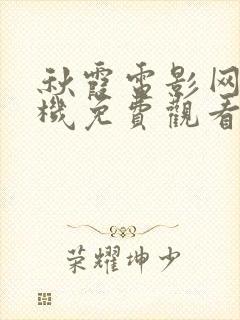 秋霞電影网
機免費觀看
荣耀坤少